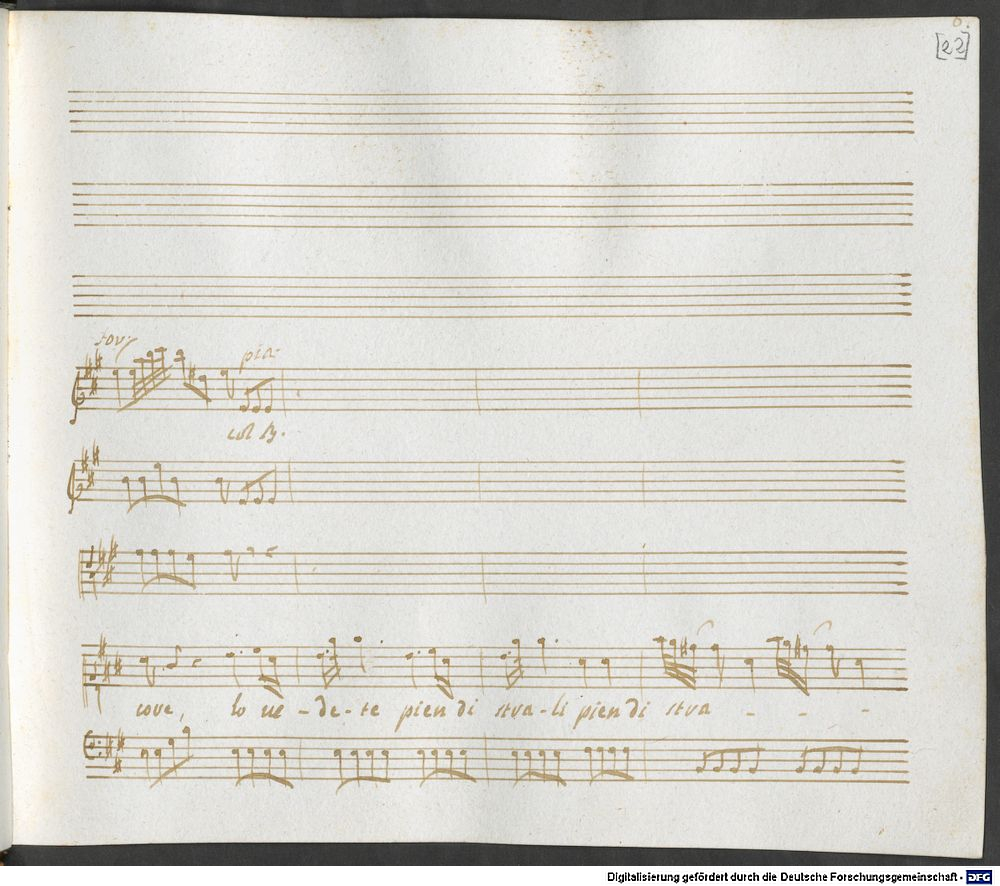 [22]
for:
pia:
col B.
core, lo ve-de-te pien di stra-li pien di stra - - -
Digitalisierung gefördert durch die Deutsche Forschungsgemeinschaft - DFG